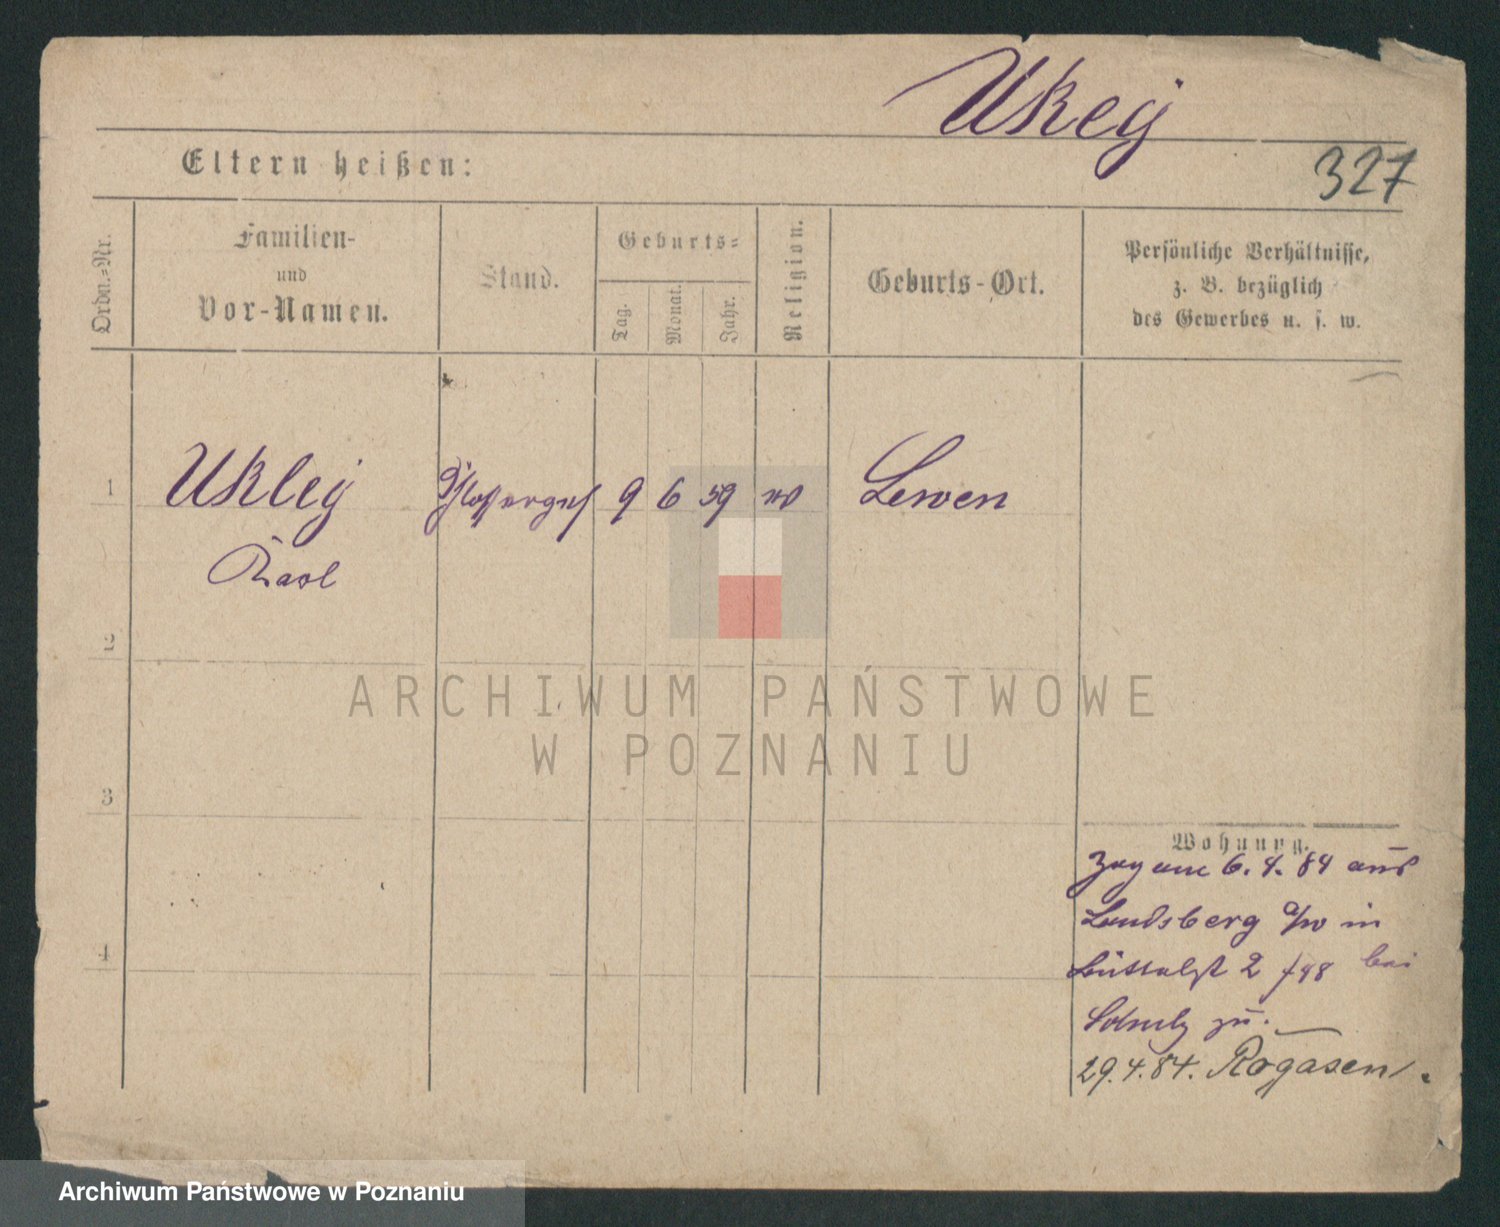 Ukeÿ
327
Eltern heißen:
Ordn.=Nr.
Familien-
und
Vor-Namen.
Stand.
Geburts=
Tag.
Monat.
Jahr.
Religion.
Geburts-Ort.
Persönliche Verhältnisse,
z. B. bezüglich
des Gewerbes u. s. w.
1
Ukleÿ
Karl
9 6 59
Lewen
2
3
4
ARCHIWUM PAŃSTWOWE
W POZNANIU
Wohnung.
Zog am 6. 4. 84 aus
Landsberg a/w in
2 bei
Schulz zu.
29.4.84. Rogasen.
Archiwum Państwowe w Poznaniu